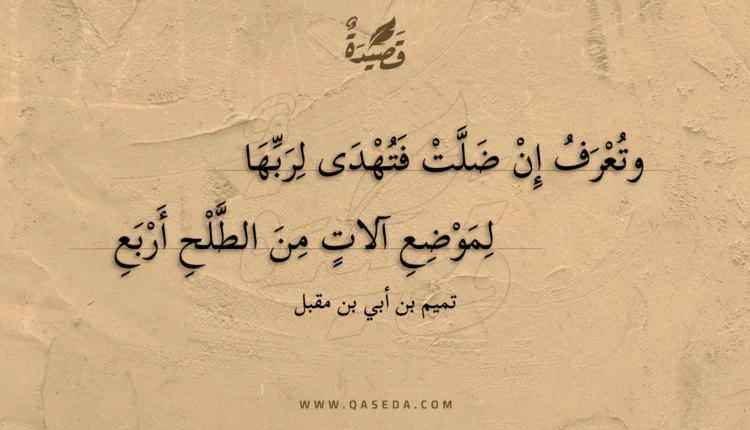 قَصِيدَةٌ
وتُعْرَفُ إِنْ ضَلَّتْ فَتُهْدَى لِرَبِّهَا
لِمَوْضِعِ آلاتٍ مِنَ الطَّلْحِ أَرْبَعِ
تميم بن أبي بن مقبل
WWW.QASEDA.COM